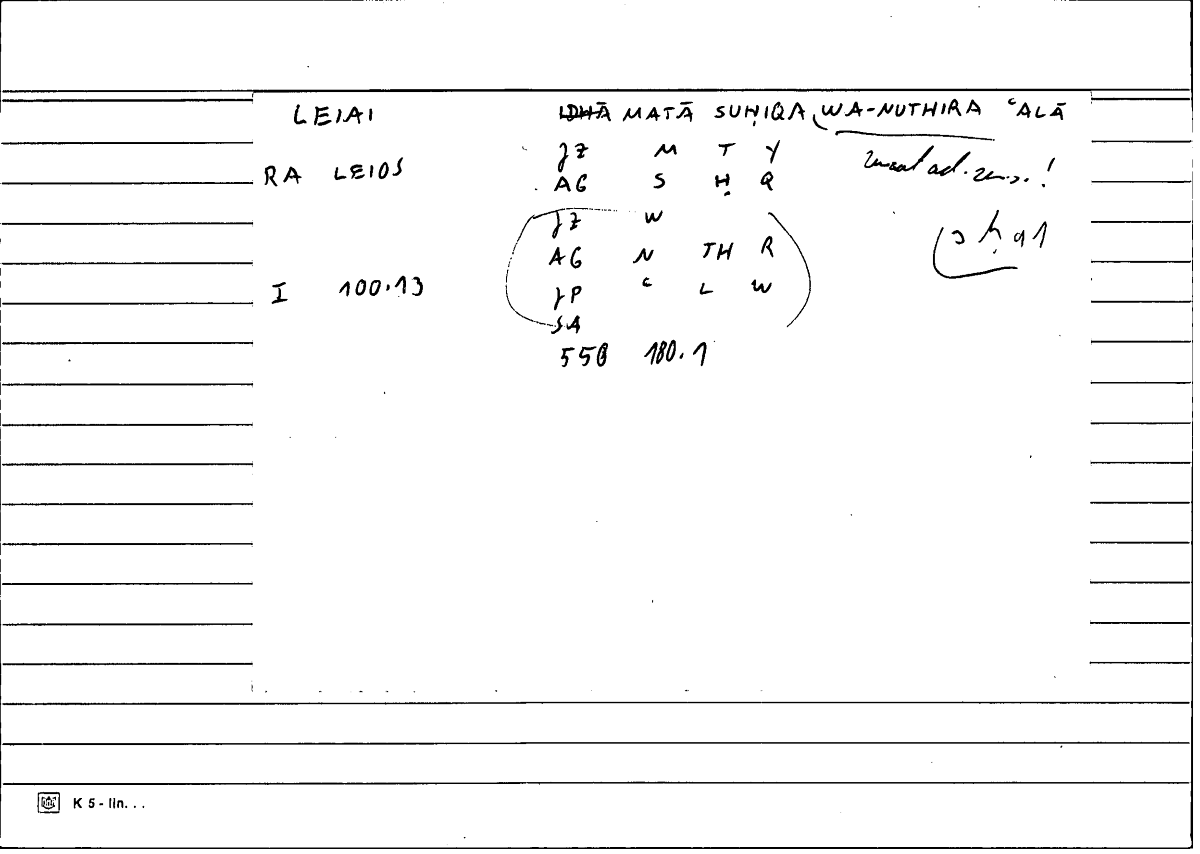 LEIAI ~~IDHĀ~~ MATĀ SUḤIQA, WA-NUTHIRA ʿALĀ
JZ M T Y
RA LEIOS AG S Ḥ Q
JZ W
AG N TH R
I 100.13 JP ʿ L W
SA
55B 180.1
K 5 - lin. . .